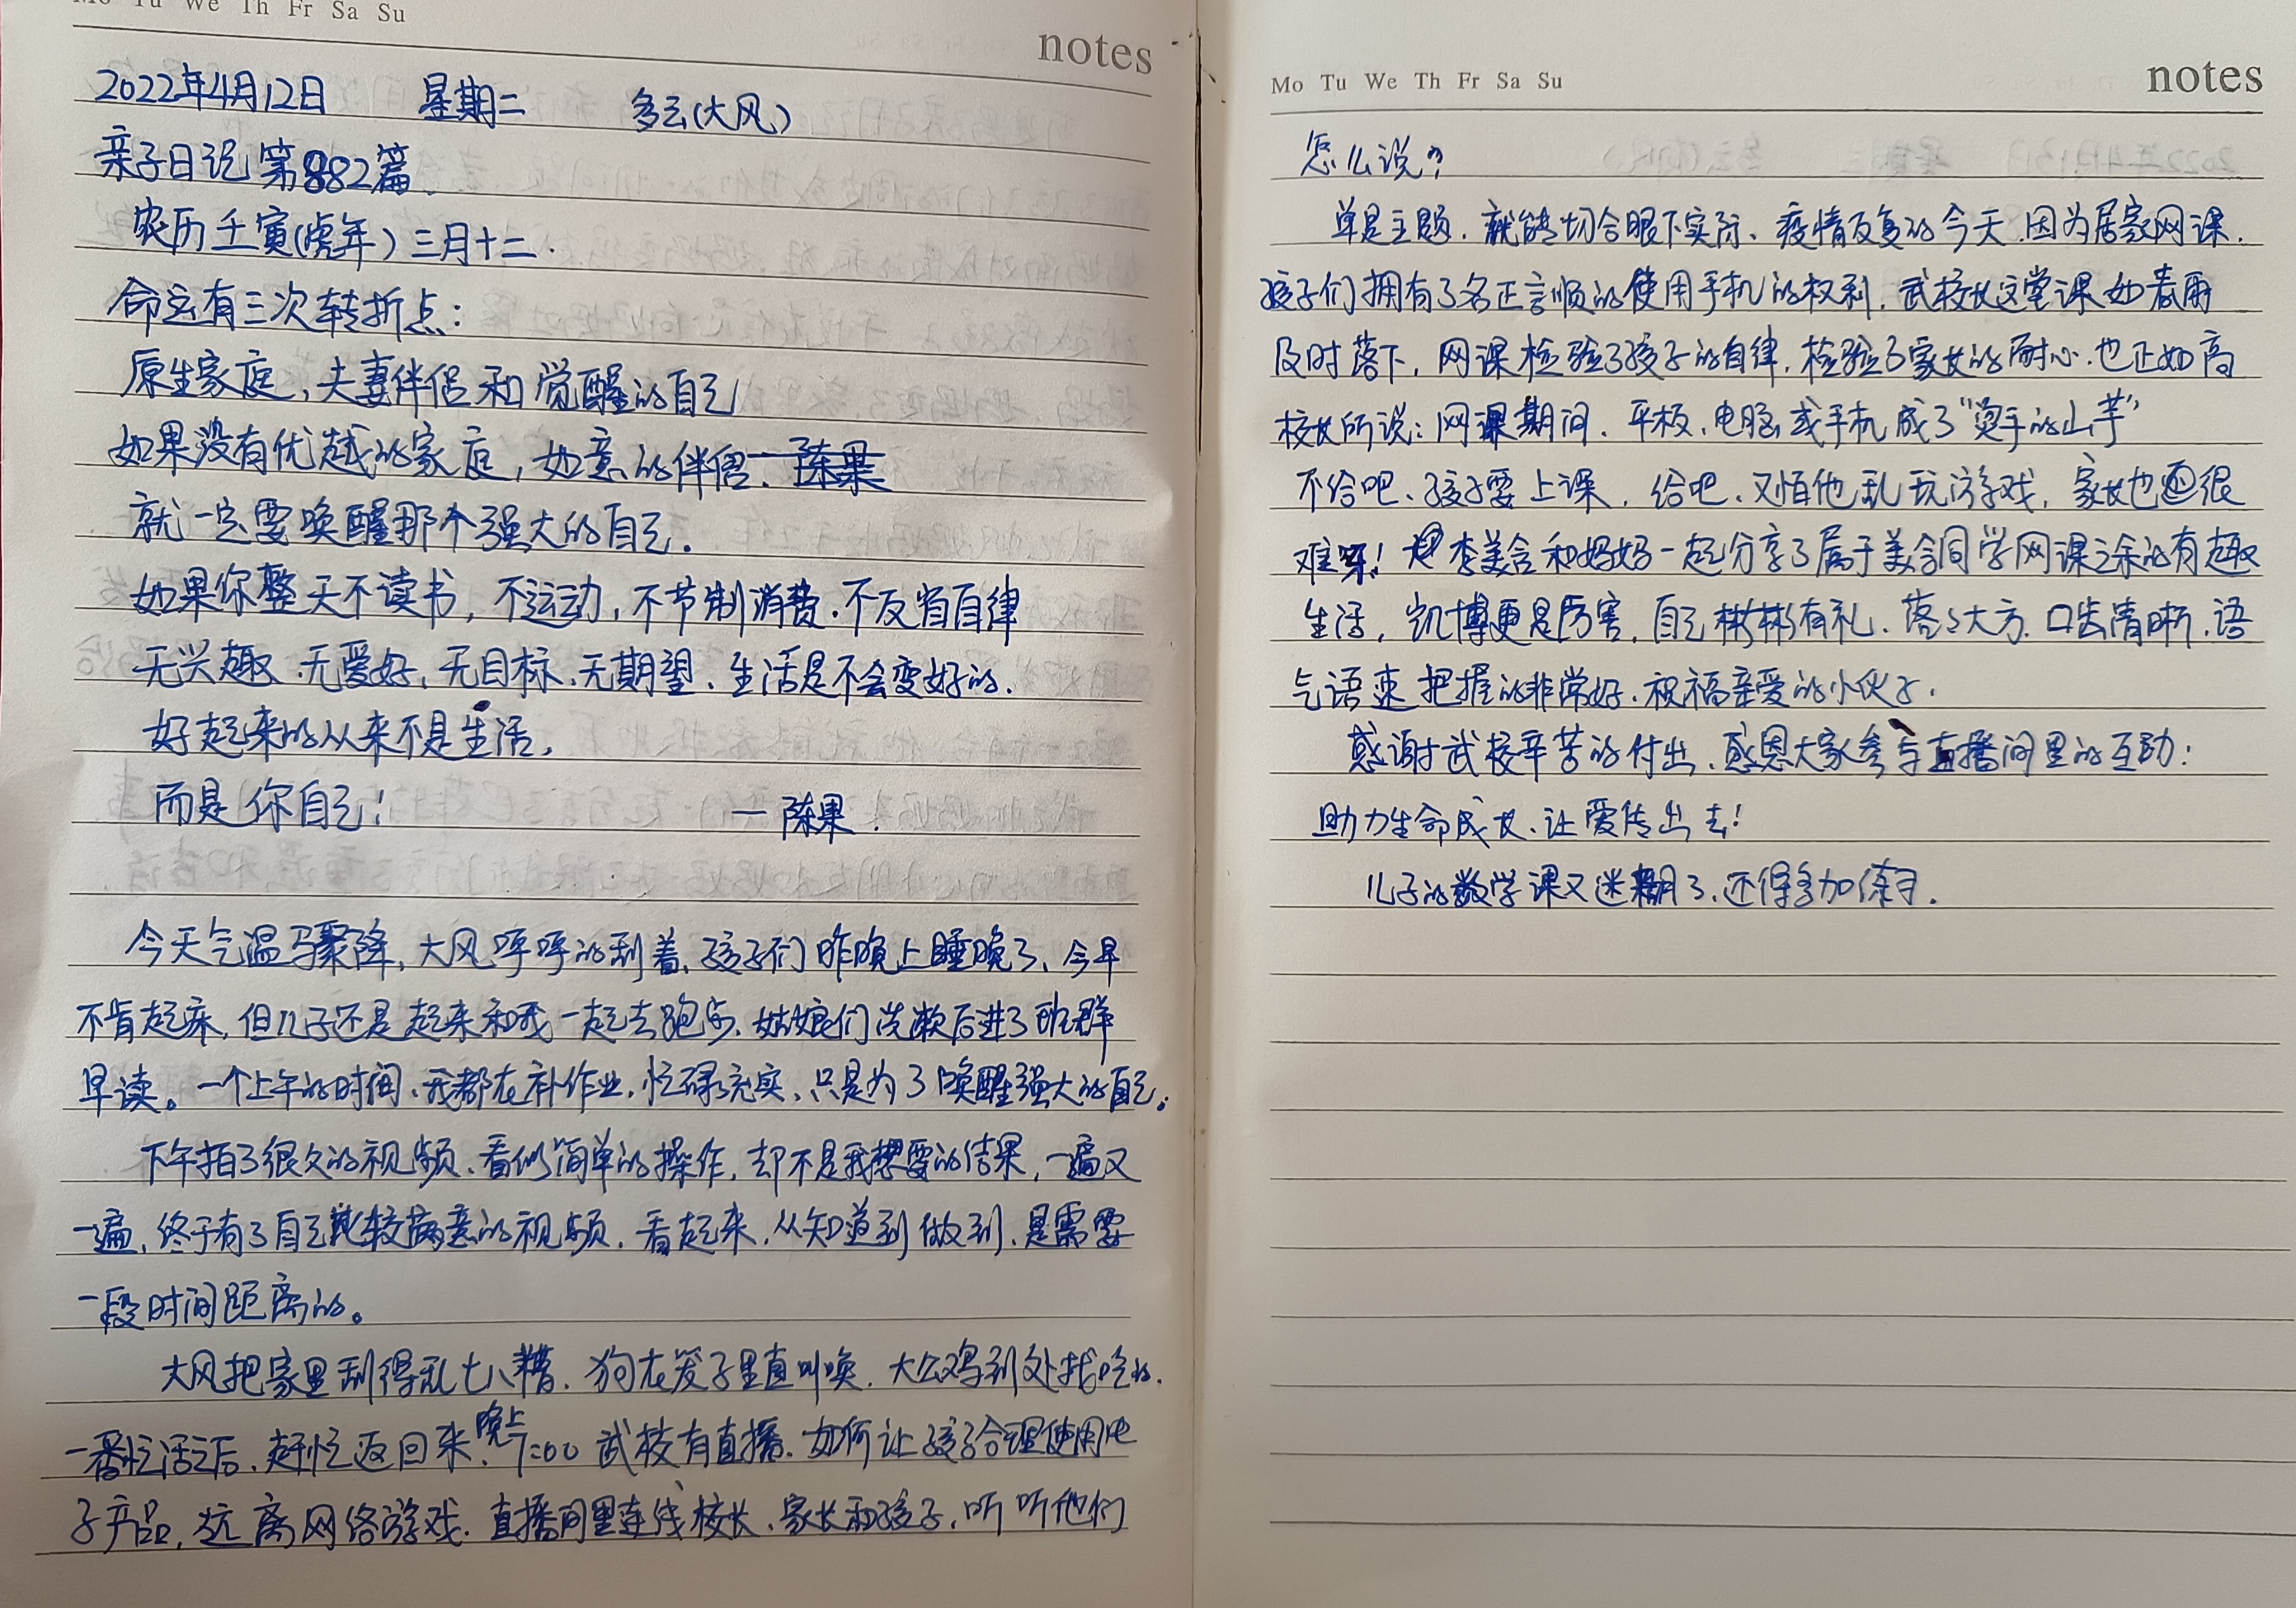 Mo Tu We Th Fr Sa Su
notes
2022年4月12日 星期二 多云(大风)
亲子日记第882篇
农历壬寅(虎年)三月十二.
命运有三次转折点:
原生家庭,夫妻伴侣和觉醒的自己
如果没有优越的家庭,如意的伴侣.
就一定要唤醒那个强大的自己.
如果你整天不读书,不运动,不节制消费.不反省自律
无兴趣.无爱好,无目标.无期望.生活是不会变好的.
好起来的从来不是生活,
而是你自己! —陈果.
今天气温骤降,大风呼呼的刮着,孩子们昨晚上睡晚了,今早
不肯起床,但儿子还是起来和我一起去跑步.姑娘们洗漱后进了班群
早读。一个上午的时间,我都在补作业,忙碌充实,只是为了唤醒强大的自己.
下午拍了很久的视频.看似简单的操作,却不是我想要的结果,一遍又
一遍,终于有了自己比较满意的视频.看起来,从知道到做到,是需要
一段时间距离的。
大风把家里刮得乱七八糟.狗在笼子里直叫唤.大公鸡到处找吃的.
一番忙活之后.赶忙返回来.晚上7:00武校有直播.如何让孩子合理使用电
子产品,远离网络游戏.直播间里连线校长.家长和孩子,听听他们
Mo Tu We Th Fr Sa Su
notes
怎么说?
单是主题.就能切合眼下实际、疫情反复的今天.因为居家网课.
孩子们拥有了名正言顺的使用手机的权利.武校长这堂课如春雨
及时落下,网课检验了孩子的自律,检验了家长的耐心.也正如高
校长所说:网课期间.平板、电脑或手机成了"烫手的山芋"
不给吧、孩子要上课,给吧.又怕他乱玩游戏,家长也直很
难呀!李美含和妈妈一起分享了属于美含同学网课之余的有趣
生活,凯博更是厉害,自己彬彬有礼.落落大方.口齿清晰.语
气语速把握的非常好.祝福亲爱的小伙子.
感谢武校辛苦的付出.感恩大家参与直播间里的互动:
助力生命成长.让爱传出去!
儿子的数学课又迷糊了.还得多加练习.